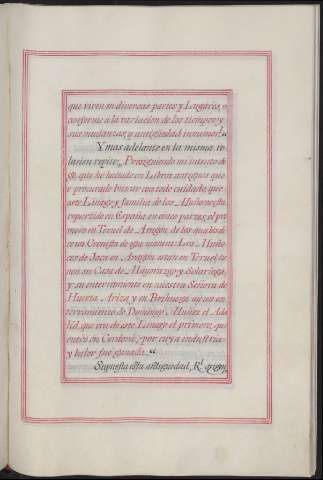 que viven en diversas partes y Lugares, o
conforme a la variacion de los tiempos y
sus mudanzas, y antigüedad inmemor.l"
Y mas adelante en la misma re-
lacion repite, Prosiguiendo mi intento di-
go, que he hallado en Libros antiguos que
e procurado buscar con todo cuidado, que
este Linage y familia de los Muñozes está
repartido en España en cinco partes, el pri-
mero en Teruel de Aragon, de los quales di-
ce un Cronista de esta manera: Los Muño-
ces de Jaca en Aragon estan en Teruel es-
son su Casa de Mayorazgo y Solariega,
y su enterramiento en nuestra Señora de
Huerta Ariza y en Berhuega ay un en-
terramiento de Domingo Muñoz el Ada-
lid, que era de este Linage el primero, que
entró en Cordova, por cuya industria
y balor fue ganada."
Supuesta esta antigüedad,